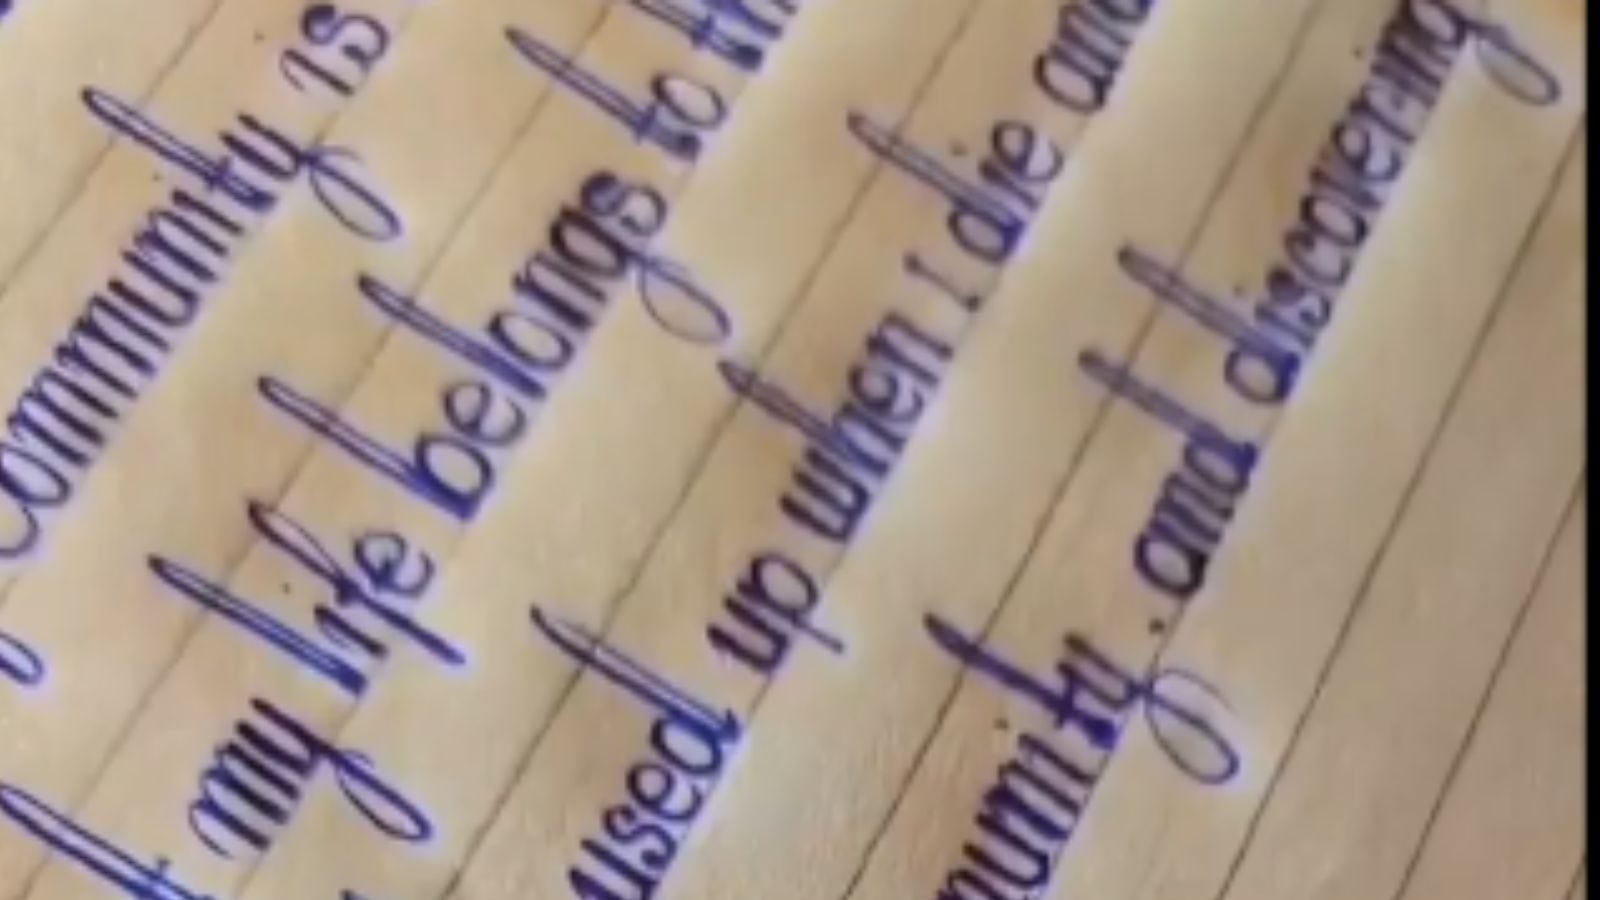 community is
my life belongs to
used up when I die and
and discovering